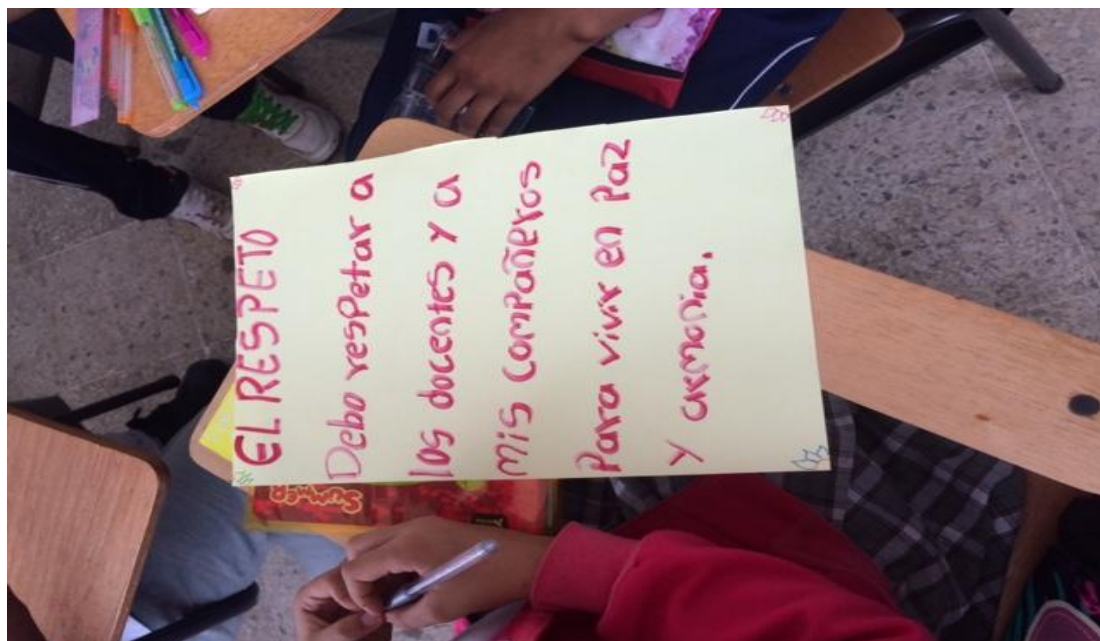 EL RESPETO
Debo resPetar a
los docentes y a
mis comPañeros
Para vivir en Paz
y armonia.
SUMMER